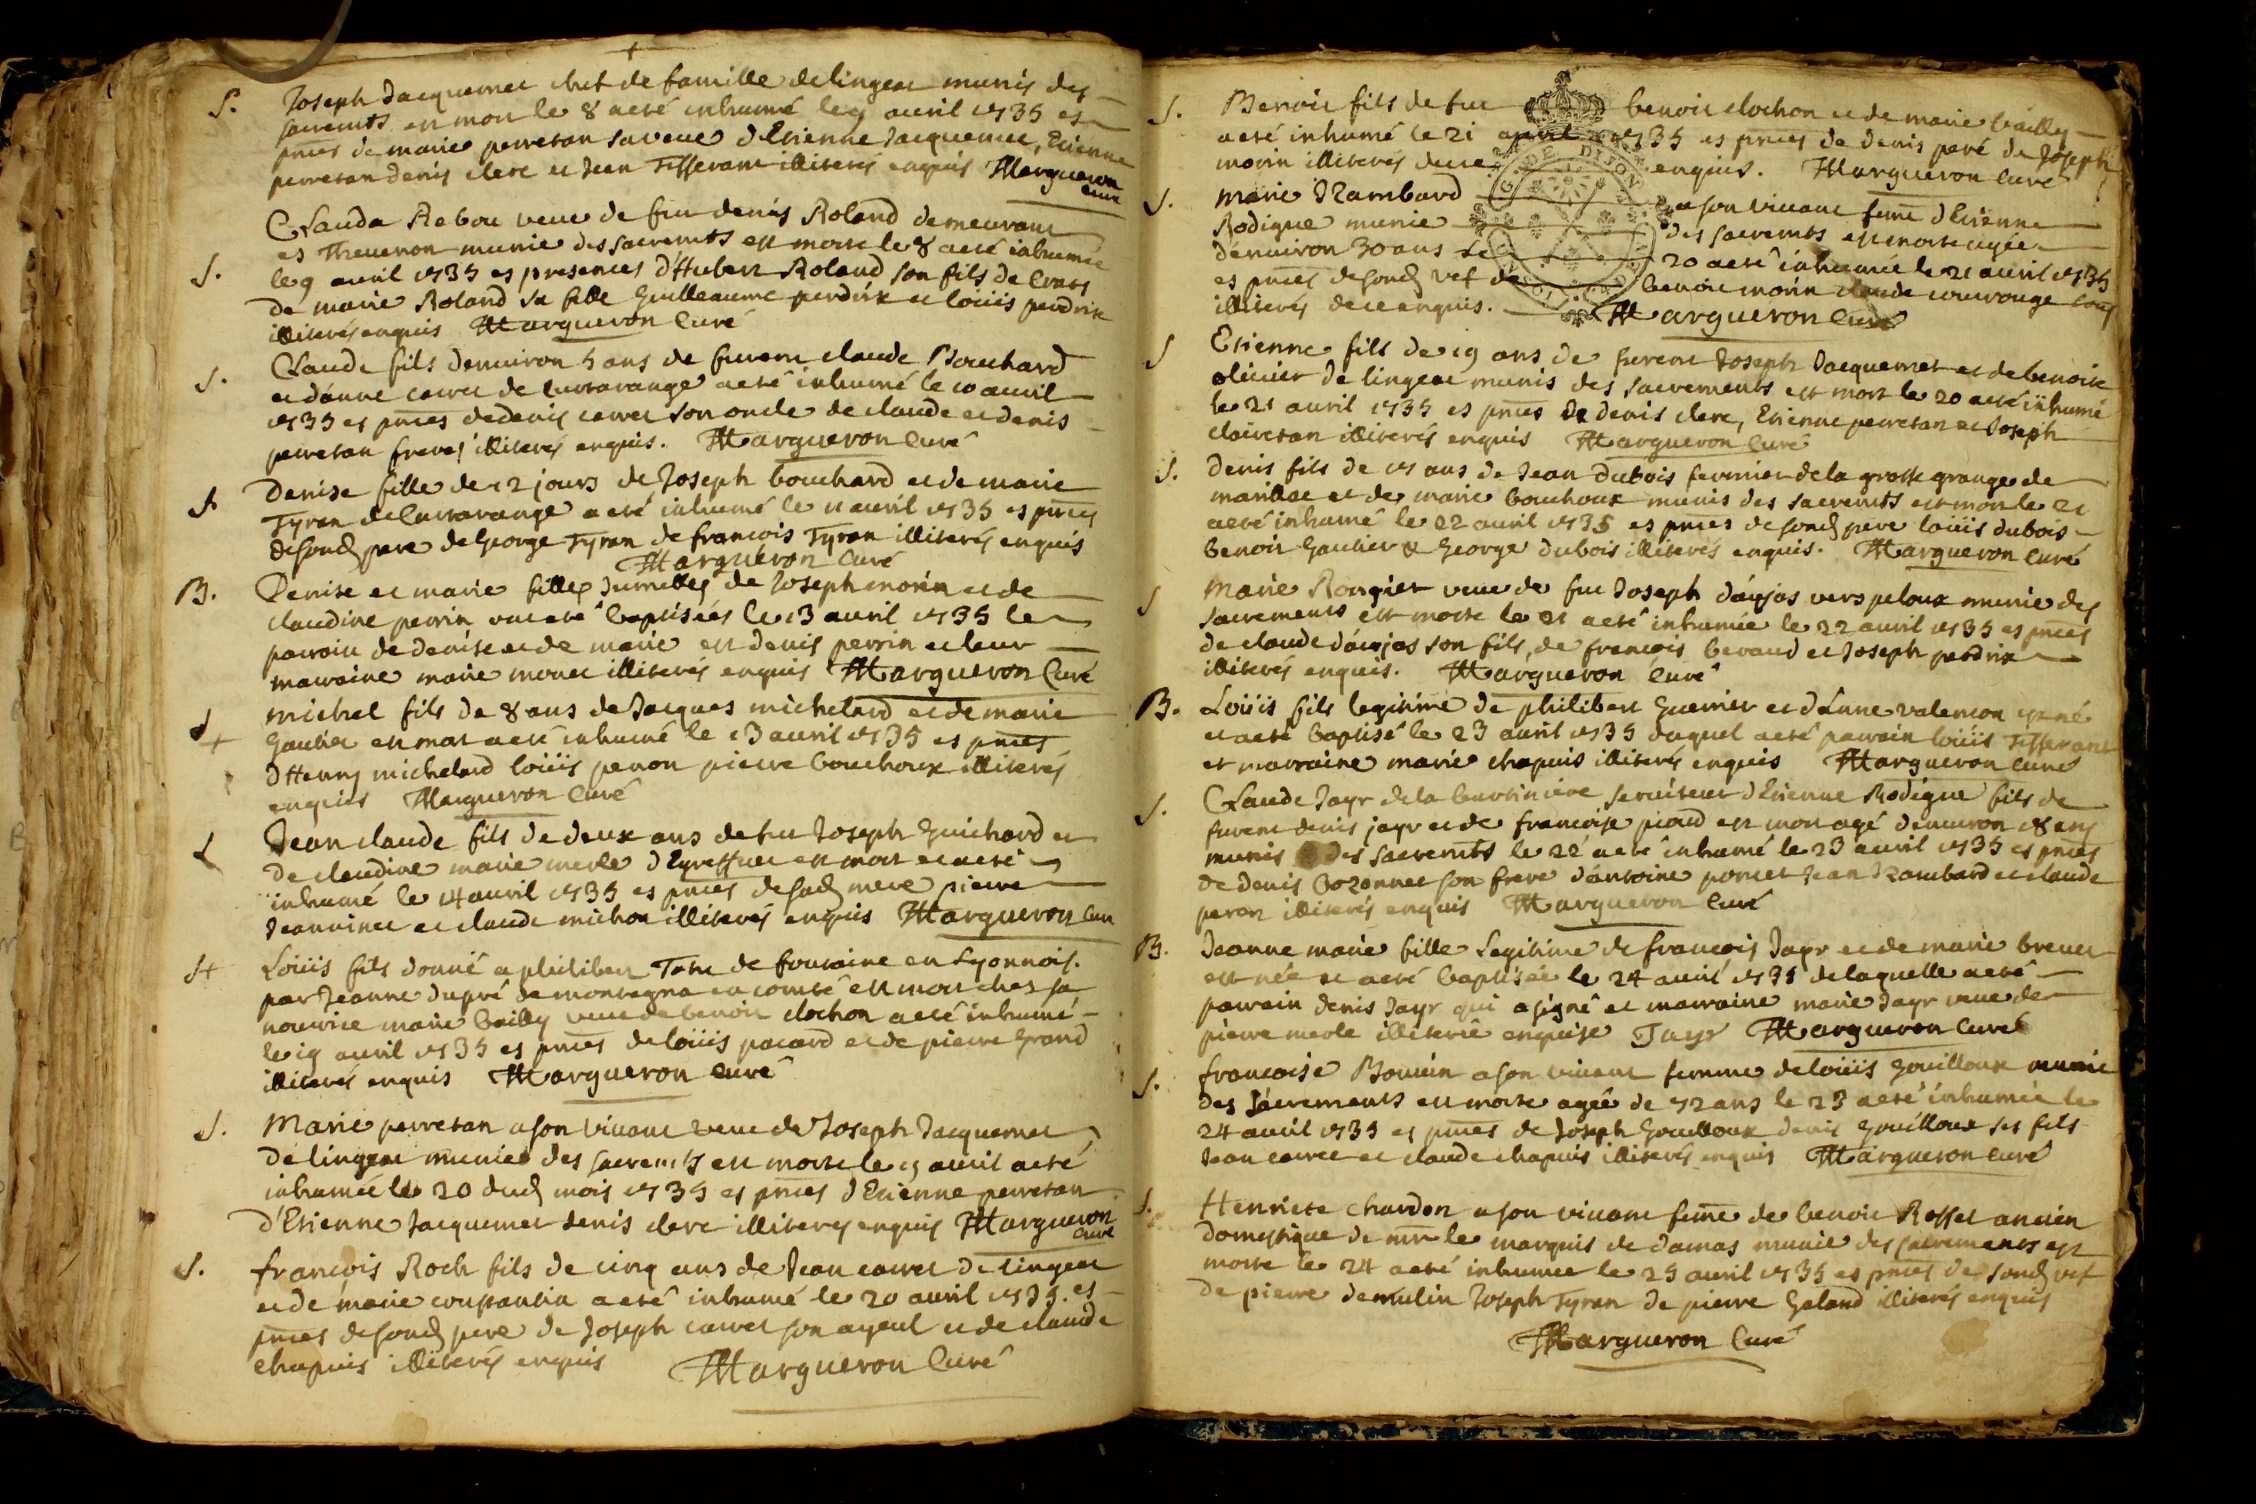 S. Joseph Jacquemet chef de famille de lingeat munis des
sacremts est mort le 8 a eté inhumé le 9 avril 1735 es
pnces de marie perretan sa veuve d'Etienne Jacquemet, Etienne
perretan denis clerc et Jean Tisserant illiterés enquis Margueron
curé
Clauda Rebou veuve de feu denis Roland demeurant
es Theuenon munie des sacremts est morte le 8 a eté inhumée
S. le 9 avril 1735 es presences d'Hubert Roland son fils de
de marie Roland sa fille Guilleaume perdrix et loüis perdrix
illiterés enquis Margueron Curé
S. Claude fils denuiron 5 ans de furent claude Bouchard
et d'anne carret de Curtarange a eté inhumé le 10 avril
1735 es pnces de denis carret son oncle de claude et denis
perretan freres illiterés enquis. Margueron Curé
S. Denise fille de 12 jours de Joseph bouchard et de marie
Tyran de Curtarange a eté inhumé le 11 avril 1735 es pnces
de sond pere de George Tyran de francois Tyran illiterés enquis
Margueron Curé
B. Denise et marie filles Jumelles de Joseph morin et de
claudine perrin ont eté baptisées le 13 avril 1735 le
parain de denise et de marie est denis perrin et leur
maraine marie monet illiterés enquis Margueron Curé
S. michel fils de 8 ans de Jacques michelard et de marie
Gautier est mort a eté inhumé le 13 avril 1735 es pnces
d'Henry michelard loüis penon pierre bouchoux illiterés
enquis Margueron Curé
S. Jean claude fils de deux ans de feu Joseph Guichard et
de claudine marie merle est mort et a eté
inhumé le 14 avril 1735 es pnces de sad mere pierre
Jeanninet et claude michon illiterés enquis Margueron Curé
S. Loüis fils donné a philibert de fontaine en Lyonnois.
par Jeanne dupré de montagna en comté est mort ches sa
nourrice marie bailly veuve de benoit clochon a eté inhumé
le 19 avril 1735 es pnces de loüis pacard et de pierre Grand
illiterés enquis Margueron Curé
S. Marie perretan a son vivant veuve de Joseph Jacquemet
de lingeat munie des sacremts est morte le 19 avril a eté
inhumée le 20 dud mois 1735 es pnces d'Etienne perretan
d'Etienne Jacquemet denis clerc illiterés enquis Margueron
Curé
S. françois Roch fils de cinq ans de Jean carret de lingeat
et de marie constantin a eté inhumé le 20 avril 1735. es
pnces de sond pere de Joseph carret son ayeul et de claude
chapuis illiterés enquis Margueron Curé
S. Benoit fils de feu benoit clochon et de marie bailly
a eté inhumé le 21 avril 1735 es pnces de denis peré de Joseph
morin illiterés de ce enquis. Margueron Curé
S. Marie Rambard a son vivant feme d'Etienne
Rodigue munie des sacremts est morte agée
d'environ 30 ans le 20 a eté inhumée le 21 avril 1735
es pnces de sond vef de benoit morin claude courrouge
illiterés de ce enquis. Margueron Curé
S Etienne fils de 19 ans de furent Joseph Jacquemet et de benoite
olivier de lingeat munis des sacrements est mort le 20 a eté inhumé
le 21 avril 1735 es pnces de denis clerc, Etienne perretan et Joseph
clairetan illiterés enquis Margueron Curé
S. Denis fils de 15 ans de Jean Dubois fermier de la grosse grange de
marillac et de marie bouchoux munis des sacremts est mort le 21
a eté inhumé le 22 avril 1735 es pnces de sond pere loüis dubois
benoit Gautier & George dubois illiterés enquis. Margueron Curé
S Marie Rongier veuve de feu Joseph d'aujas vers peloux munie des
sacrements est morte le 21 a eté inhumée le 22 avril 1735 es pnces
de claude d'aujas son fils, de françois beraud et Joseph perdrix
illiterés enquis. Margueron Curé
B. Loüis fils legitime de philibert Guerrier et d'Anne valencon est né
et a eté baptisé le 23 avril 1735 duquel a eté parrain loüis Tisserant
et marraine marie chapuis illiterés enquis Margueron Curé
S. Claude Jayr de la berthiniere serviteur d'Etienne Rodigue fils de
furent denis jayr et de francoise picaud est mort agé d'environ 18 ans
munis des sacremts le 22 a eté inhumé le 23 avril 1735 es pnces
de denis bozonnet son frere d'antoine poncet Jean Rambard et claude
peron illiterés enquis Margueron Curé
B. Jeanne marie fille legitime de francois Jayr et de marie brevet
est née et a eté baptisée le 24 avril 1735 de laquelle a eté
parrain denis Jayr qui a signé et marraine marie Jayr veuve de
pierre merle illiterée enquise Jayr Margueron Curé
S. francoise Bouvin a son vivant femme de loüis Gouilloux munie
des sacrements est morte agée de 52 ans le 23 a eté inhumée le
24 avril 1735 es pnces de Joseph Gouilloux denis Gouilloux ses fils
Jean carret et claude chapuis illiterés enquis Margueron Curé
S. Henriete chardon a son vivant feme de benoit Rosset ancien
domestique de mr le marquis de damas munie des sacrements est
morte le 24 a eté inhumee le 25 avril 1735 es pnces de sond vef
de pierre demulin Joseph Tyran de pierre Galand illiterés enquis
Margueron Curé
G. DE DIJON